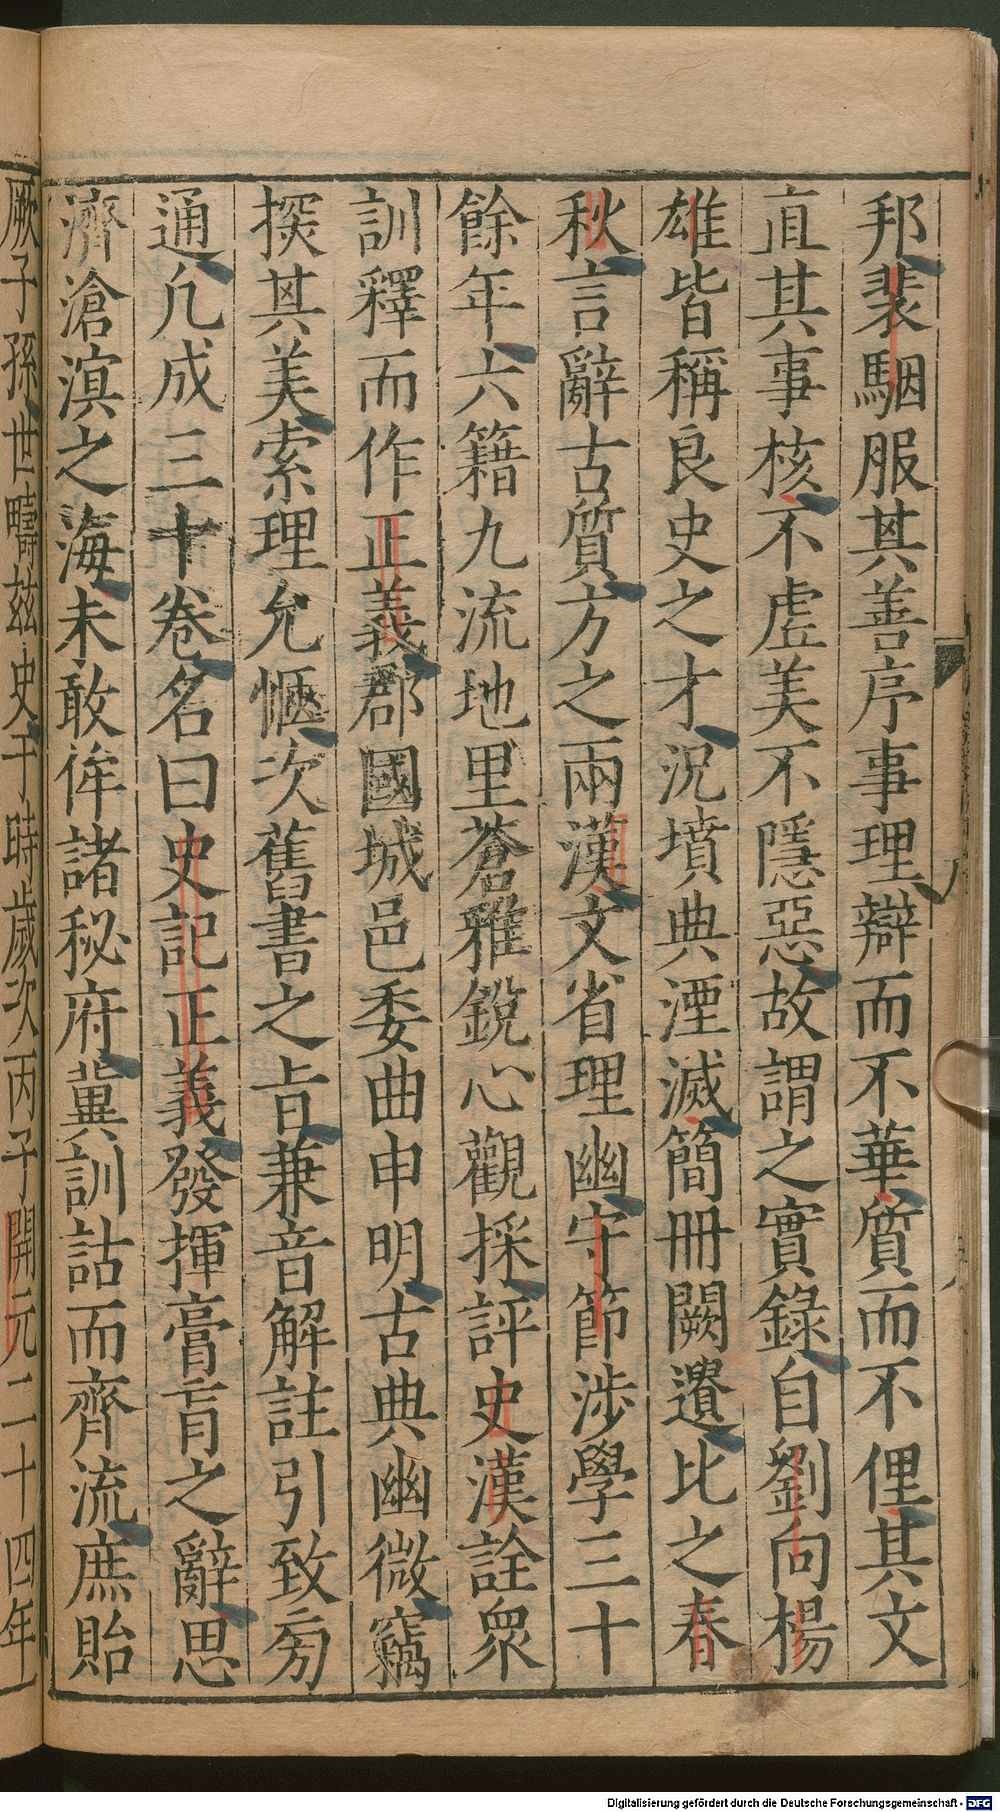 邦裴駰服其善序事理辯而不華質而不俚其文
直其事核不虛美不隱惡故謂之實錄自劉向楊
雄皆稱良史之才況墳典湮滅簡冊闕遺比之春
秋言辭古質方之兩漢文省理幽守節涉學三十
餘年六籍九流地里蒼雅銳心觀採評史漢詮眾
訓釋而作正義郡國城邑委曲申明古典幽微竊
探其美索理允愜次舊書之旨兼音解註引致旁
通凡成三十卷名曰史記正義發揮膏肓之辭思
濟滄溟之海未敢侔諸秘府冀訓詁而齊流庶貽
厥子孫世疇茲史于時歲次丙子開元二十四年
Digitalisierung gefördert durch die Deutsche Forschungsgemeinschaft - DFG